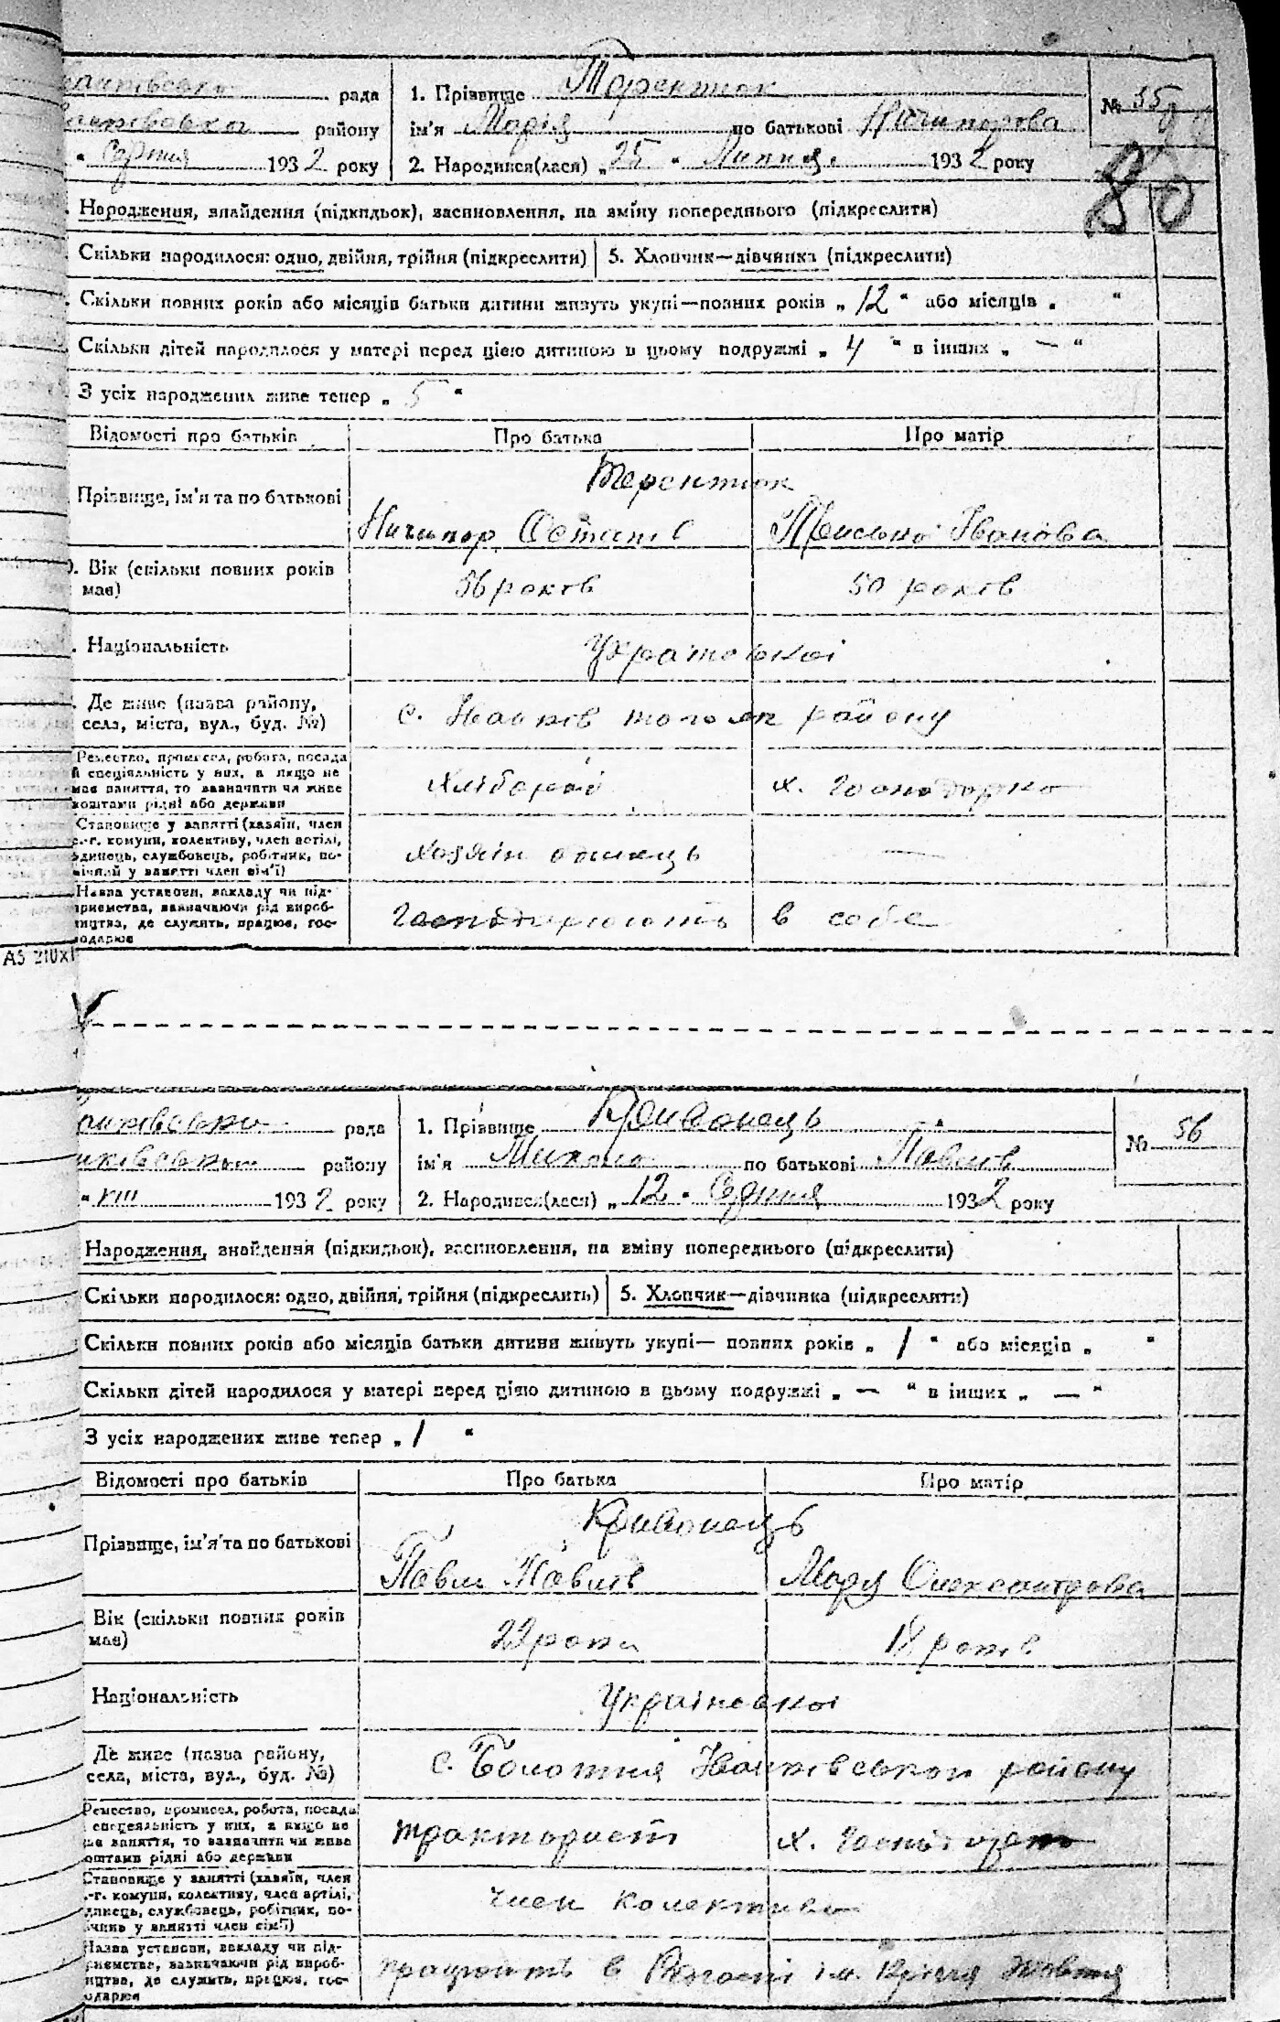 рада
району
" серпня 1932 року
1. Прізвище Терентюк
ім'я Марія по батькові Ничипорова
2. Народився(лася) „25" Липня 1932 року
№ 55
80
Народження, знайдення (підкидьок), засиновлення, на зміну попереднього (підкреслити)
Скільки народилося: одно, двійня, трійня (підкреслити) 5. Хлопчик—дівчинка (підкреслити)
Скільки повних років або місяців батьки дитини живуть укупі—повних років „12" або місяців „ "
Скільки дітей народилося у матері перед цією дитиною в цьому подружжі „4" в інших „—"
З усіх народжених живе тепер „5"
Відомості про батьків Про батька Про матір
Терентюк
Прізвище, ім'я та по батькові
Ничипор Остапів Іванова
Вік (скільки повних років має) 56 років 50 років
Національність Української
Де живе (назва району, села, міста, вул., буд. №) с. Іванків того ж району
Ремество, промисел, робота, посада
й спеціяльність у них, а якщо не
має заняття, то зазначити чи живе
коштами рідні або держави
Хлібороб х. Господарка
Становище у занятті (хазяїн, член
с.-г. комуни, колективу, член артілі,
одинець, службовець, робітник, по-
мічний у занятті член сім'ї)
Хозяїн одинець —
Назва установи, закладу чи під-
приємства, зазначаючи рід вироб-
ництва, де служить, працює, гос-
подарює
Господарюють в себе
А5 210х
рада
району
" VIII 1932 року
1. Прізвище Кривонець
ім'я Микола по батькові Павлів
2. Народився(лася) „12" Серпня 1932 року
№ 56
Народження, знайдення (підкидьок), засиновлення, на зміну попереднього (підкреслити)
Скільки народилося: одно, двійня, трійня (підкреслить) 5. Хлопчик—дівчинка (підкреслити)
Скільки повних років або місяців батьки дитини живуть укупі— повних років „1" або місяців „ "
Скільки дітей народилося у матері перед цією дитиною в цьому подружжі „—" в інших „—"
З усіх народжених живе тепер „1"
Відомості про батьків Про батька Про матір
Кривонець
Прізвище, ім'я та по батькові
Павло Павлів Марія Олександрова
Вік (скільки повних років має) 22 роки 18 років
Національність Української
Де живе (назва району, села, міста, вул., буд. №) с. Болотня Іванківського району
Ремество, промисел, робота, посада
спеціяльність у них, а якщо не
має заняття, то зазначити чи живе
коштами рідні або держави
тракторист х.
Становище у занятті (хазяїн, член
с.-г. комуни, колективу, член артілі,
одинець, службовець, робітник, по-
мічний у занятті член сім'ї)
член колективу
Назва установи, закладу чи під-
приємства, зазначаючи рід вироб-
ництва, де служить, працює, гос-
подарює
працюють в ім. Жовтня